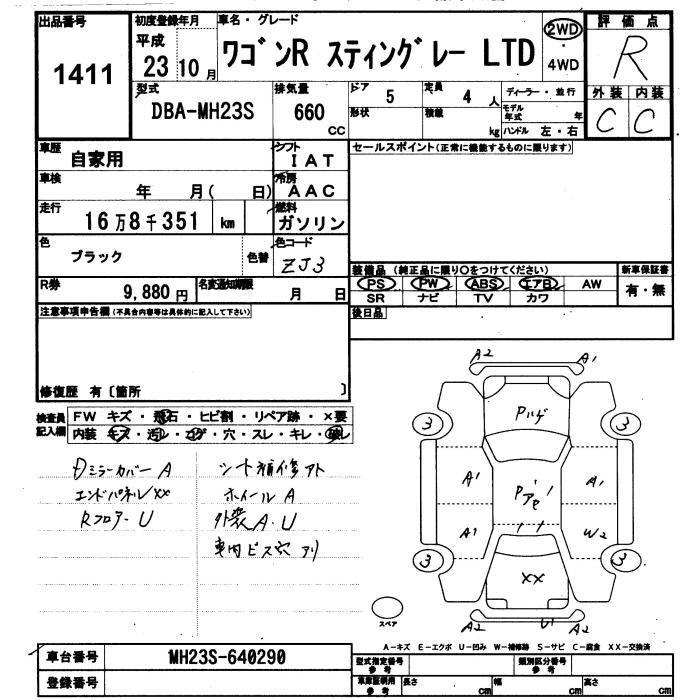 出品番号
1411
初度登録年月
平成
23 10 月
車名・グレード
ワゴンR スティングレー LTD
2WD
・
4WD
評価点
R
外装 内装
C C
型式
DBA-MH23S
排気量
660
CC
ドア
5
形状
定員
4 人
積載
kg
ディーラー・並行
モデル年式 年
ハンドル 左・右
車歴
自家用
シフト
I A T
車検
年 月( 日)
冷房
A A C
走行
16万8千351 km
燃料
ガソリン
色
ブラック
色替
色コード
ZJ3
R券
9,880円
名変通知期限
月 日
セールスポイント(正常に機能するものに限ります)
装備品 (純正品に限り○をつけてください)
新車保証書
PS PW ABS エアB AW
有・無
SR ナビ TV カワ
後日品
注意事項申告欄(不具合内容等は具体的に記入して下さい)
修復歴 有〔箇所 〕
検査員記入欄
FW キズ・飛石・ヒビ割・リペア跡・×要
内装 キズ・汚レ・コゲ・穴・スレ・キレ・破レ
Dミラーカバー A
シート補修アト
エンドパネルXX
ホイール A
Rフロアー U
外装 A.U
車内ビス穴 アリ
A2 A1
Pハゲ
3 3
A1 A1
Pアセ
A1 W2
3 3
XX
A2 U1 A2
スペア
A-キズ E-エクボ U-凹み W-補修跡 S-サビ C-腐食 XX-交換済
車台番号
MH23S-640290
登録番号
型式指定番号 参考
類別区分番号 参考
車庫証明用 参考
長さ cm
幅 cm
高さ cm